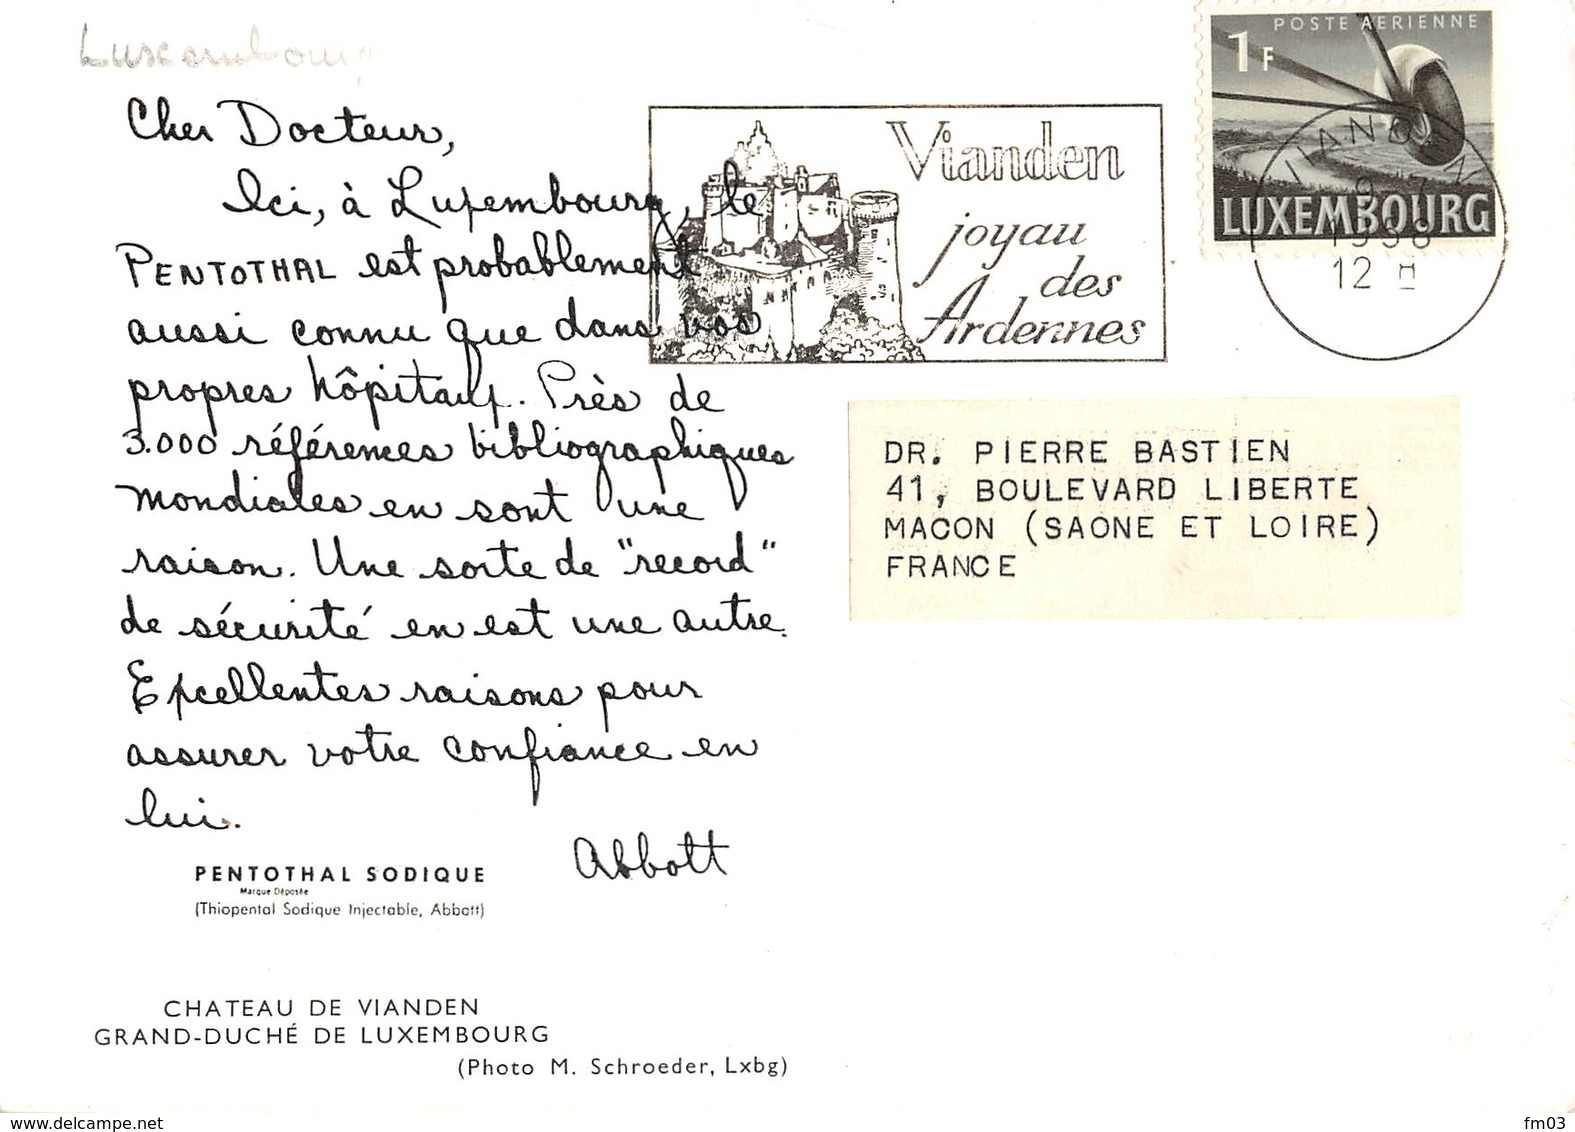 Luxembourg
POSTE AERIENNE
1 F
LUXEMBOURG
VIANDEN
1958
12 H
Vianden
joyau
des
Ardennes
Cher Docteur,
Ici, à Luxembourg, le
PENTOTHAL est probablement
aussi connu que dans vos
propres hôpitaux. Près de
3.000 références bibliographiques
mondiales en sont une
raison. Une sorte de "record"
de sécurité en est une autre.
Excellentes raisons pour
assurer votre confiance en
lui.
Abbott
DR. PIERRE BASTIEN
41, BOULEVARD LIBERTE
MACON (SAONE ET LOIRE)
FRANCE
PENTOTHAL SODIQUE
Marque Déposée
(Thiopental Sodique Injectable, Abbott)
CHATEAU DE VIANDEN
GRAND-DUCHÉ DE LUXEMBOURG
(Photo M. Schroeder, Lxbg)
www.delcampe.net
fm03